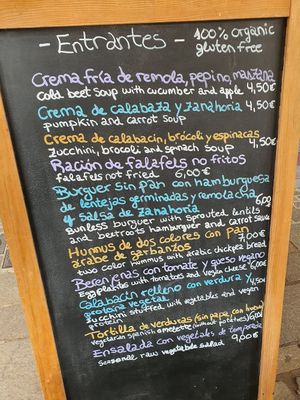 - Entrantes -
100% organic
gluten free
Crema fría de remola, pepino, manzana
cold beet soup with cucumber and apple 4,50€
Crema de calabaza y zanahoria 4,50€
pumpkin and carrot soup
Crema de calabacin, brócoli y espinacas
zucchini, broccoli and spinach soup 4,50€
Ración de falafels no fritos
falafels not fried 6,00€
Burguer sin pan con hamburguesa
de lentejas germinadas y remolacha
y salsa de zanahoria
Bunless burguer with sprouted lentils
and beetroots hamburguer and carrot sauce
Hummus de dos colores con pan
árabe de garbanzos 7,00€
two color hummus with arabic chickpea bread
Berenjenas con tomate y queso vegano
Eggplants with tomatoes and vegan cheese
Calabacin relleno con verdura y
proteina vegetal
zucchini stuffed with vegetables and vegan
protein
Tortilla de verduras (sin papa, con huevo)
vegetarian spanish omelette (without potatoes)
Ensalada con vegetales de temporada
seasonal raw vegetable salad 9,00€